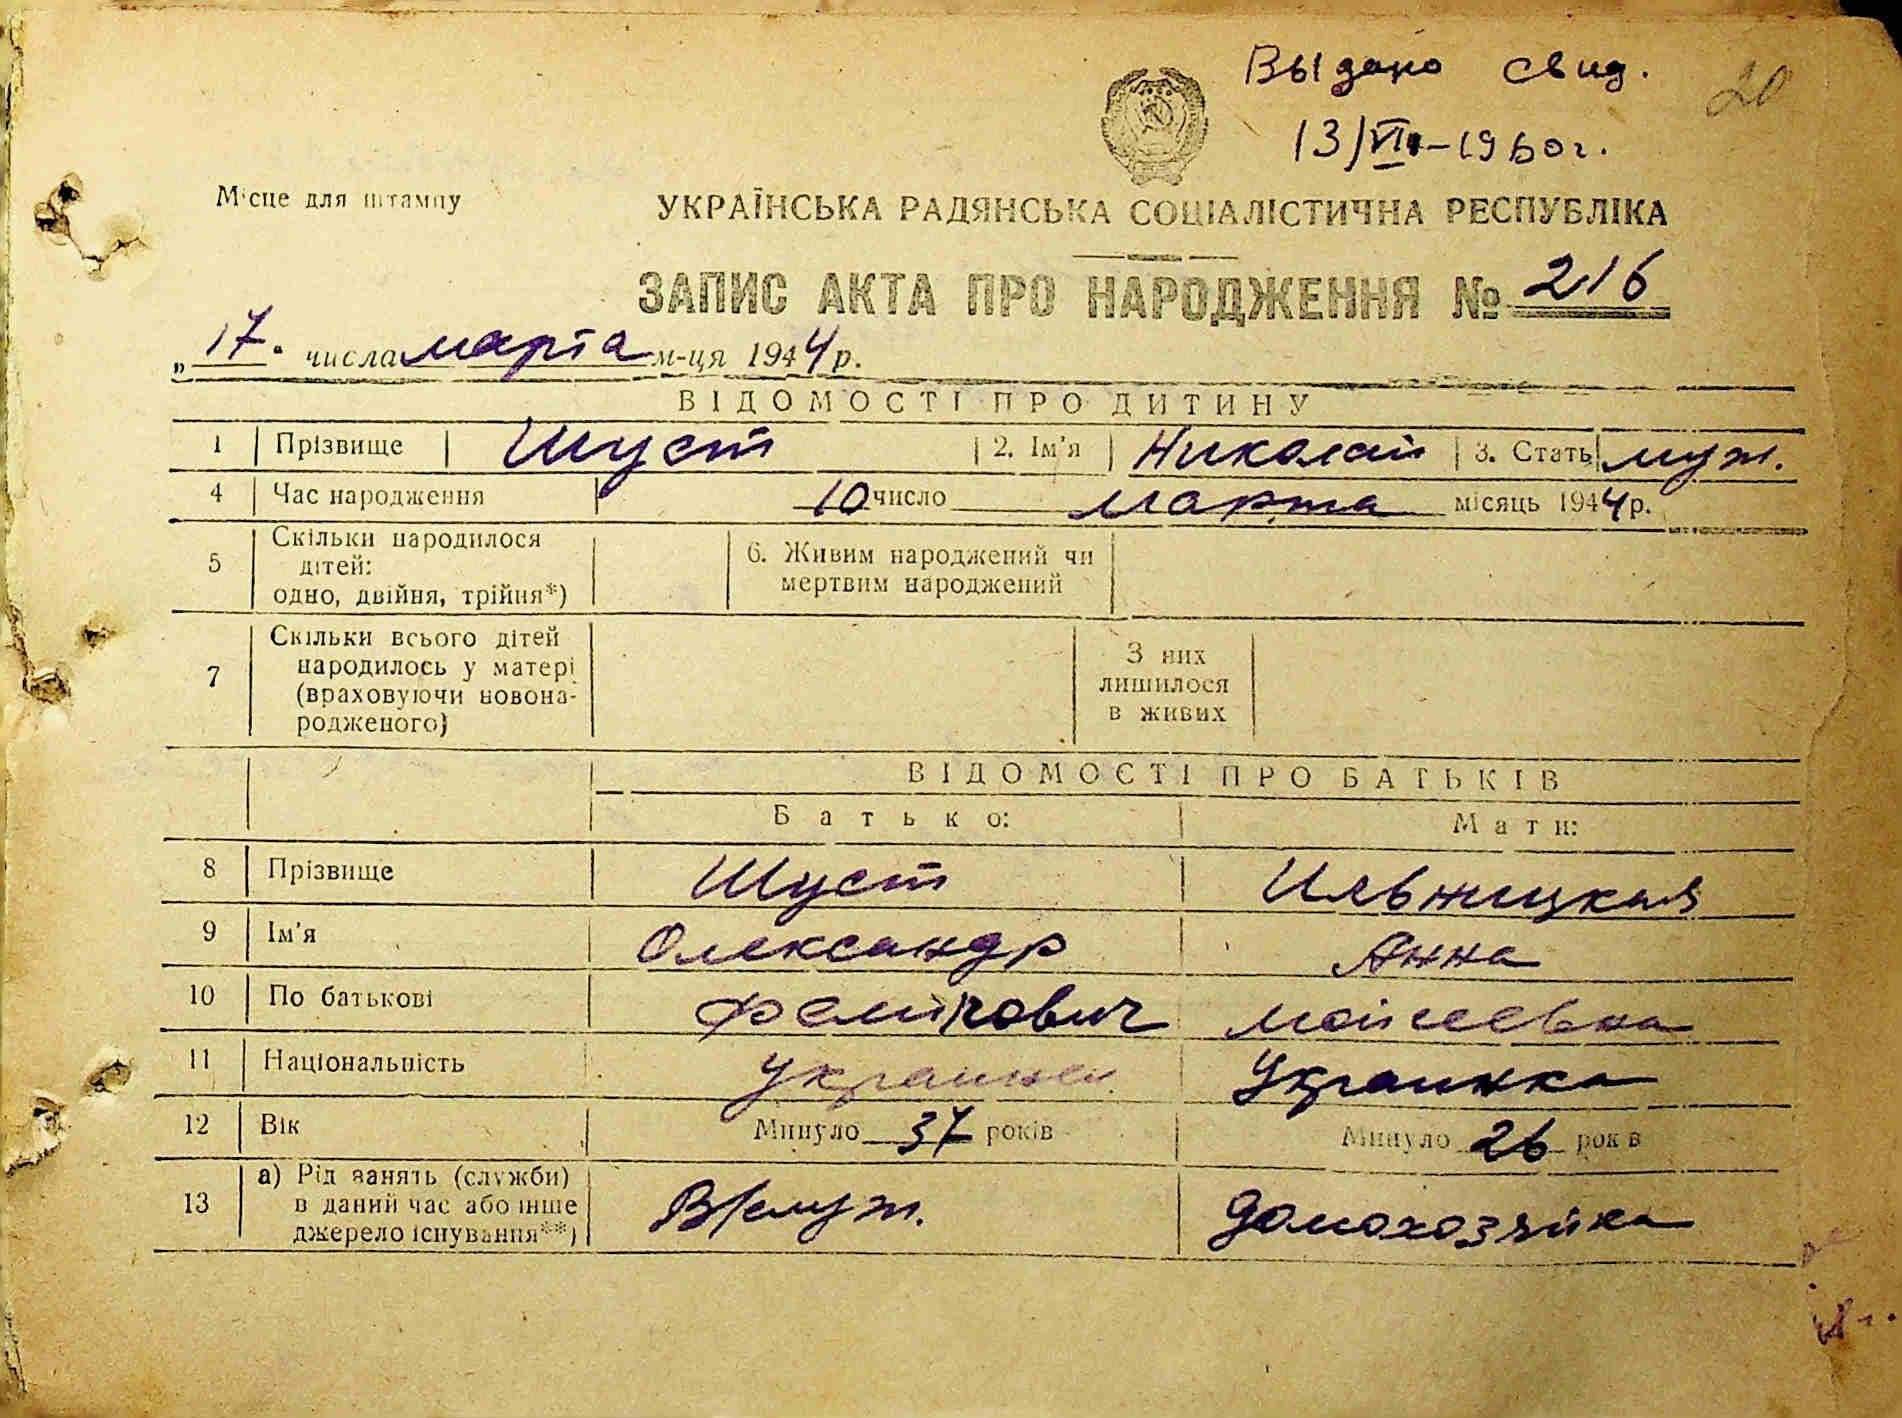 Выдано свид.
20
13/VII-1960г.
Місце для штампу
УКРАЇНСЬКА РАДЯНСЬКА СОЦІАЛІСТИЧНА РЕСПУБЛІКА
ЗАПИС АКТА ПРО НАРОДЖЕННЯ № 216
„17" числа марта м-ця 1944 р.
ВІДОМОСТІ ПРО ДИТИНУ
1 Прізвище Шуст 2. Ім'я Николай 3. Стать муж.
4 Час народження 10 число марта місяць 1944 р.
5 Скільки народилося дітей: одно, двійня, трійня*) 6. Живим народжений чи мертвим народжений
7 Скільки всього дітей народилось у матері (враховуючи новонародженого) З них лишилося в живих
ВІДОМОСТІ ПРО БАТЬКІВ
Батько: Мати:
8 Прізвище Шуст Ильницкая
9 Ім'я Олександр Анна
10 По батькові Мойсеевна
11 Національність украинец Украинка
12 Вік Минуло 37 років Минуло 26 років
13 а) Рід занять (служби) в даний час або інше джерело існування**) В/служ. домохозяйка